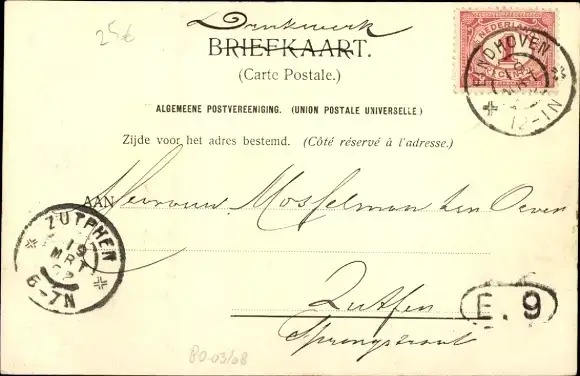 25€
Drukwerk
BRIEFKAART.
(Carte Postale.)
ALGEMEENE POSTVEREENIGING. (UNION POSTALE UNIVERSELLE)
Zijde voor het adres bestemd. (Côté réservé à l'adresse.)
NEDERLAND
1
CENT
EINDHOVEN
19
MRT
12-1N
AAN Mevrouw Mosselman ten Oever
ZUTPHEN
19
MRT
02
6-7N
Zutfen
E. 9
Sprongstraat
PO 03/08